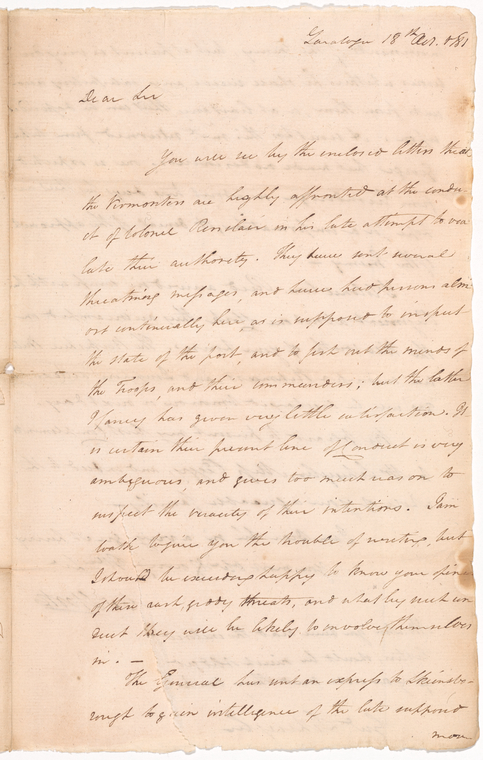 Saratoga 18th Octr. 1781
Dear Sir
You will see by the enclosed letters that
the Vermonters are highly affronted at the condu-
ct of Colonel Renslair in his late attempt to vio
late their authority. They have sent several
threatning messages, and have had persons alm
ost continually here, as is supposed to inspect
the state of the post, and to fish out the minds of
the Troops, and their commanders; but the latter
I fancy has given very little satisfaction. It
is certain their present line of Conduct is very
ambiguous, and gives too much reason to
suspect the veracity of their intentions. I am
loath to give you the trouble of writing, but
I should be exceeding happy to know your opini
of these rash, giddy threats, and what by such con
duct they will be likely to involve themselves
in. —
The General has sent an express to Skinsbo-
rough to gain intelligence of the late supposed